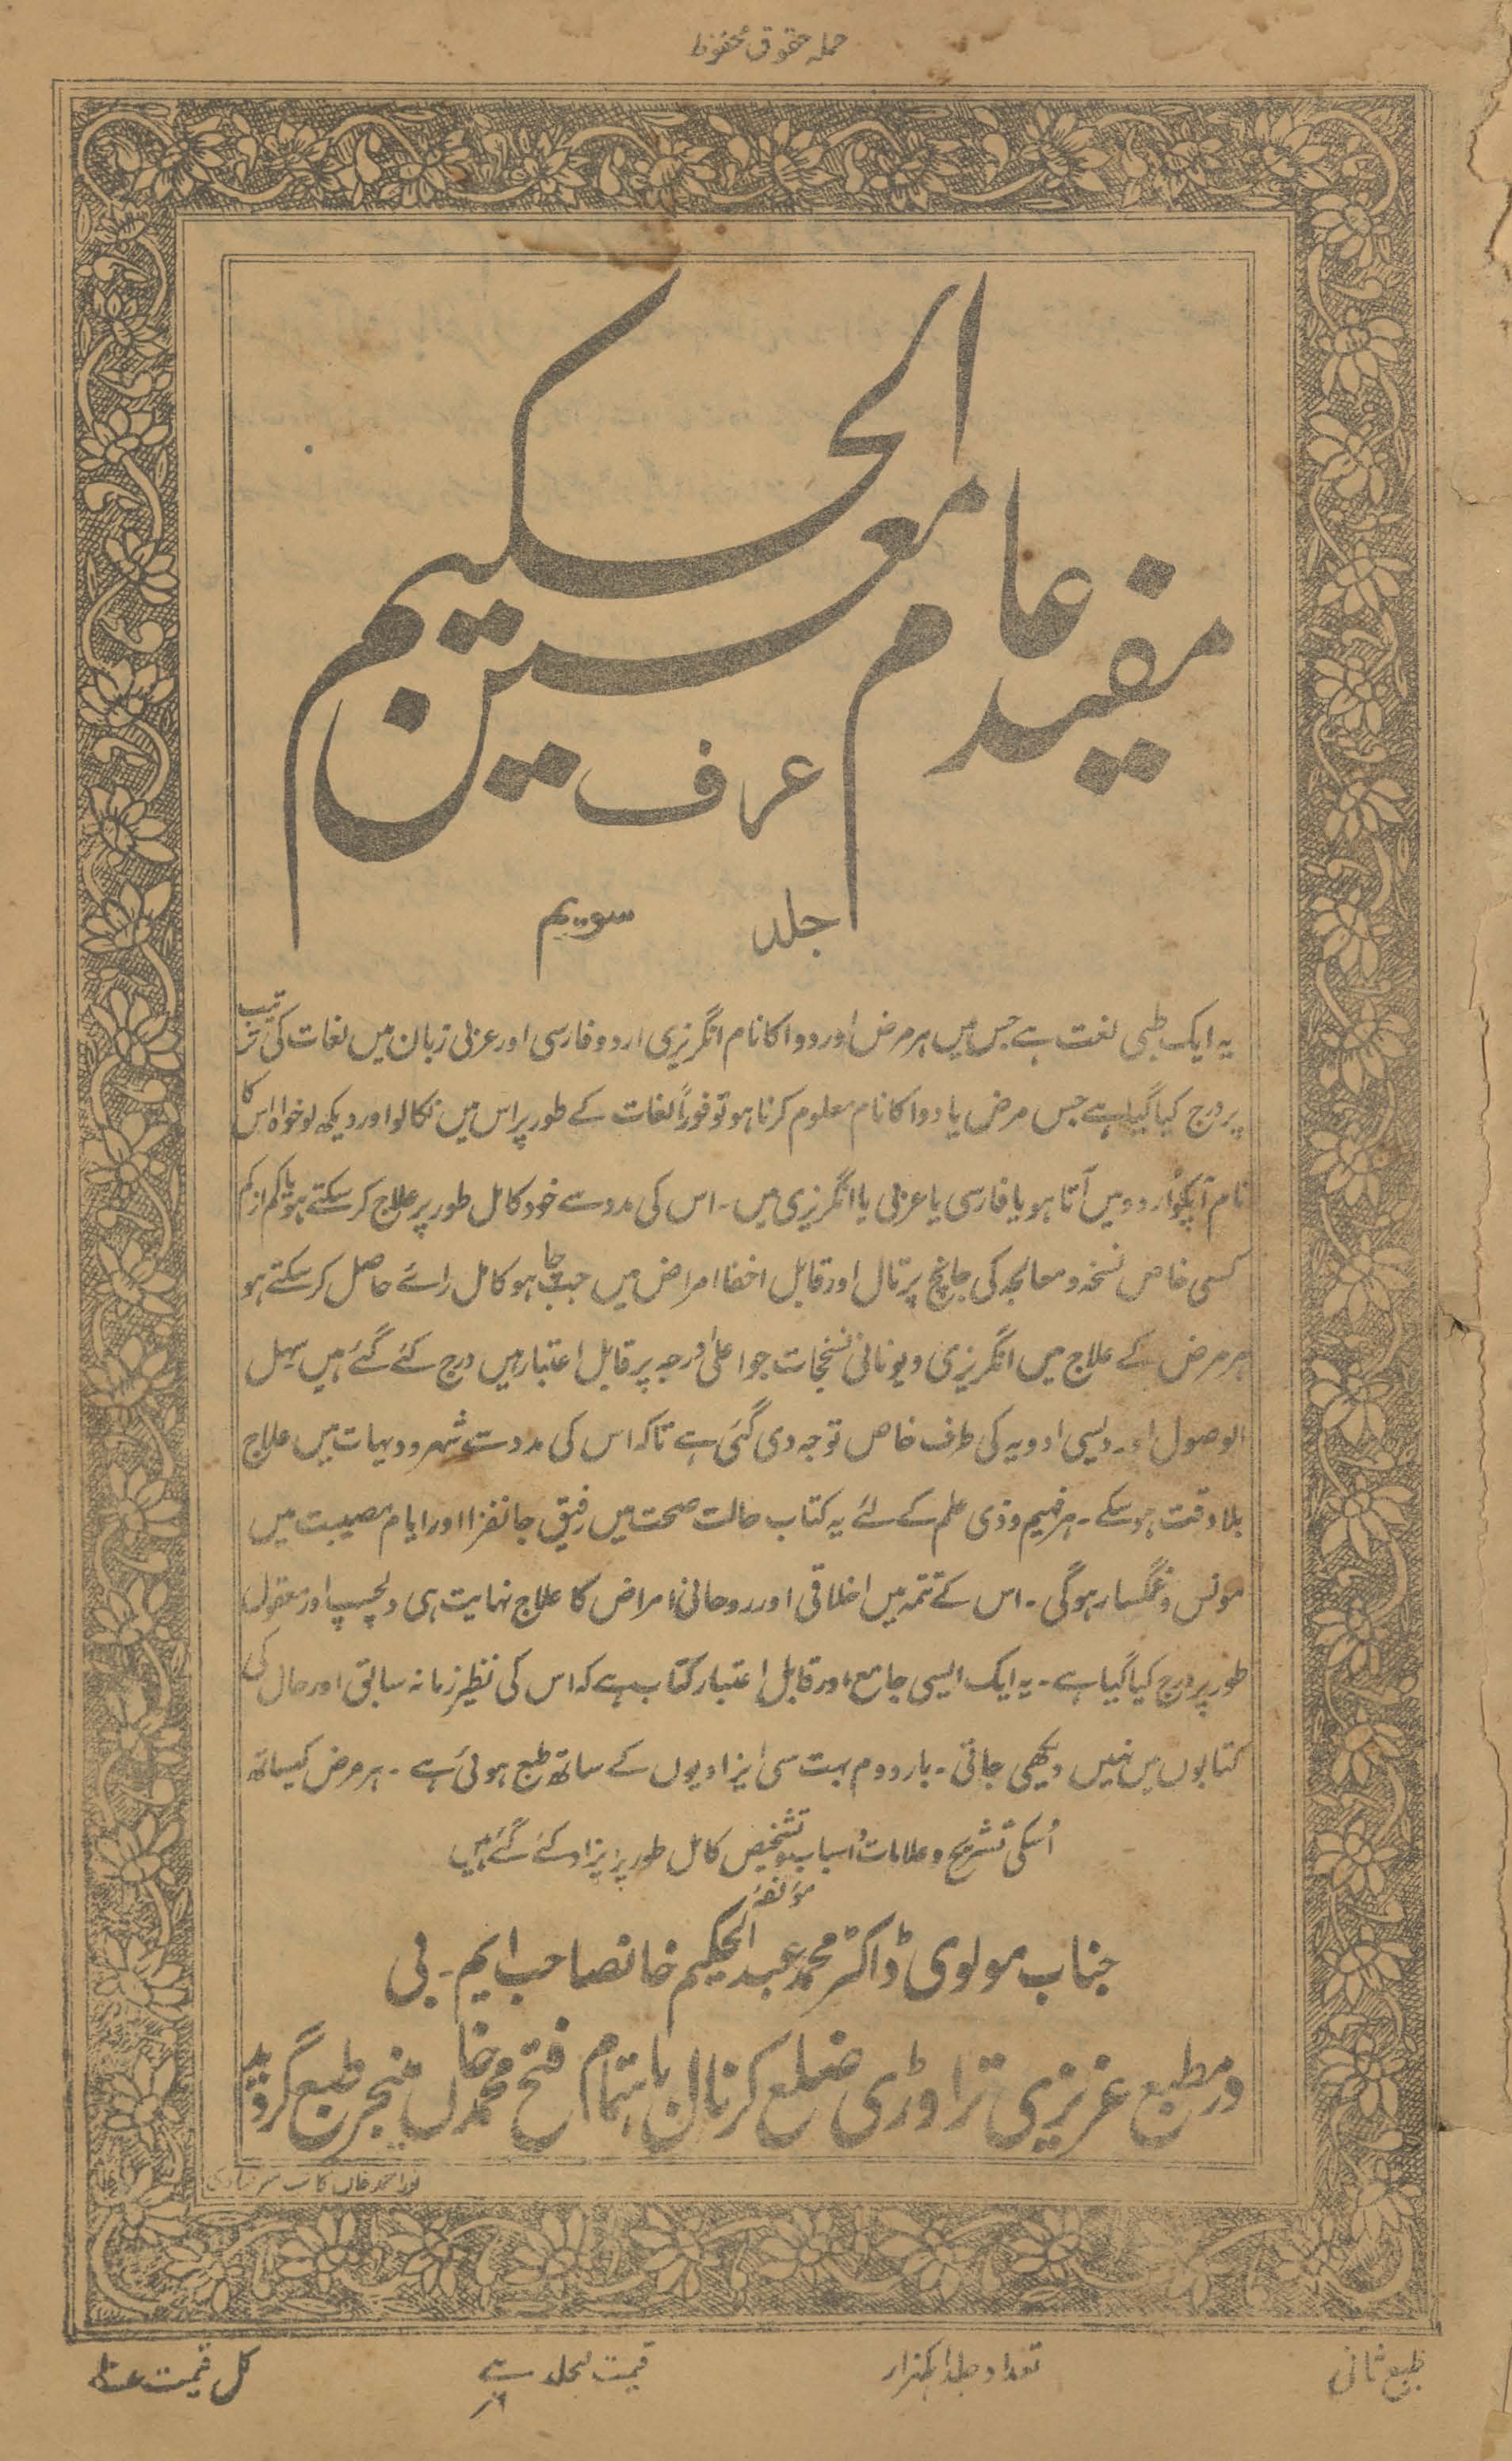 جملہ حقوق محفوظ
مفید عام
عرف
معین الحکیم
جلد سویم
یہ ایک طبی لغت ہے جس میں ہر مرض اور دوا کا نام انگریزی اردو فارسی اور عربی زبان میں لغات کی ترتیب
پر درج کیا گیا ہے جس مرض یا دوا کا نام معلوم کرنا ہو تو فوراً لغات کے طور پر اس میں نکالو اور دیکھ لو خواہ اس کا
نام آپکو اردو میں آتا ہو یا فارسی یا عربی یا انگریزی میں۔ اس کی مدد سے خود کامل طور پر علاج کر سکتے ہو یا کم از کم
کسی خاص نسخہ و معالجہ کی جانچ پرتال اور قابل اخفا امراض میں جب چاہو کامل رائے حاصل کر سکتے ہو
ہر مرض کے علاج میں انگریزی و یونانی نسخجات جو اعلیٰ درجہ پر قابل اعتبار ہیں درج کئے گئے ہیں سہل
الوصول اور دیسی ادویہ کی طرف خاص توجہ دی گئی ہے تاکہ اس کی مدد سے شہر و دیہات میں علاج
بلا دقت ہو سکے۔ ہر فہیم و ذی علم کے لئے یہ کتاب حالت صحت میں رفیق جانفزا اور ایام مصیبت میں
مونس و غمگسار ہوگی۔ اس کے تتمہ میں اخلاقی اور روحانی امراض کا علاج نہایت ہی دلچسپ اور معقول
طور پر درج کیا گیا ہے۔ یہ ایک ایسی جامع اور قابل اعتبار کتاب ہے کہ اس کی نظیر زمانہ سابق اور حال کی
کتابوں میں نہیں دیکھی جاتی۔ بار دوم بہت سی ایزادیوں کے ساتھ طبع ہوئی ہے۔ ہر مرض کیساتھ
اُسکی تشریح و علامات و اسباب و تشخیص کامل طور پر ایزاد کئے گئے ہیں
مؤلفہٗ
جناب مولوی ڈاکٹر محمد عبد الحکیم خانصاحب ایم۔ بی
در مطبع عزیزی تراوڑی ضلع کرنال باہتمام فتح محمد خاں منیجر طبع گردید
نور احمد خاں کاتب
طبع ثانی
تعداد جلد ایکہزار
قیمت لجلد
کل قیمت